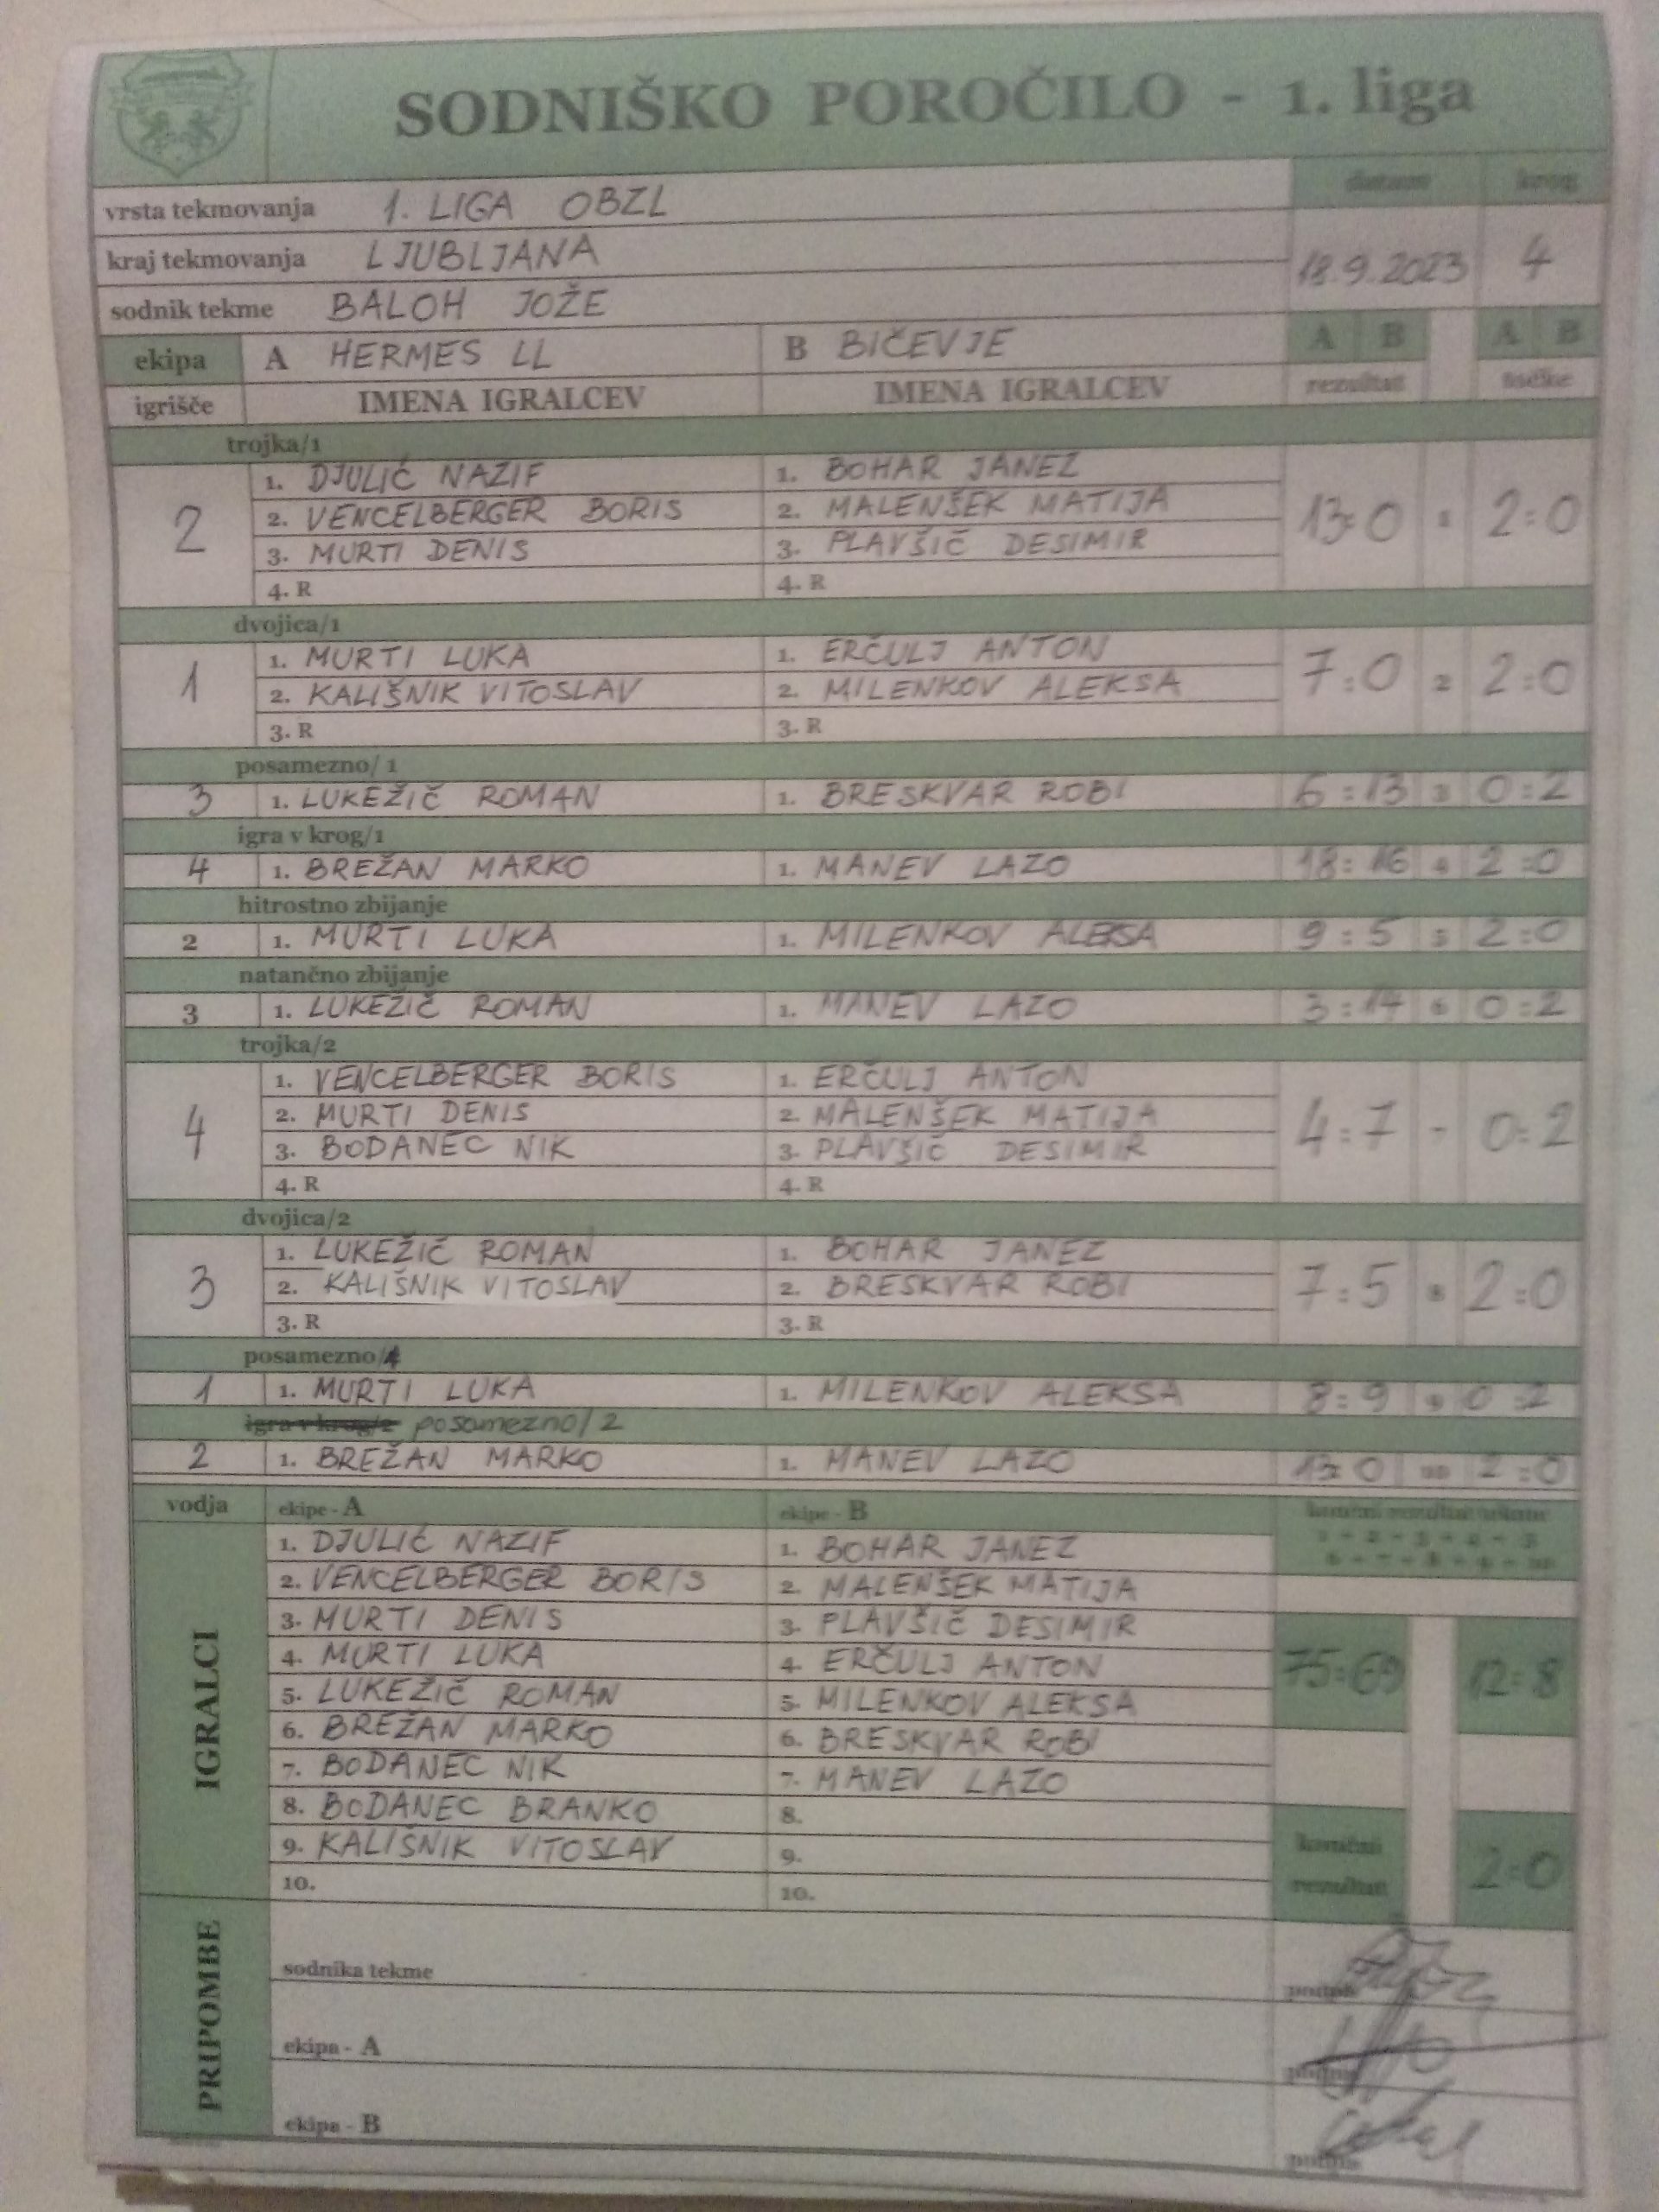 SODNIŠKO POROČILO - 1. liga
datum krog
vrsta tekmovanja 1. LIGA OBZL
kraj tekmovanja LJUBLJANA
18.9.2023 4
sodnik tekme BALOH JOŽE
ekipa A HERMES LL B BIČEVJE A B A B
igrišče IMENA IGRALCEV IMENA IGRALCEV rezultat točke
trojka/1
1. DJULIĆ NAZIF 1. BOHAR JANEZ
2 2. VENCELBERGER BORIS 2. MALENŠEK MATIJA 13:0 1 2:0
3. MURTI DENIS 3. PLAVŠIČ DESIMIR
4. R 4. R
dvojica/1
1. MURTI LUKA 1. ERČULJ ANTON
1 2. KALIŠNIK VITOSLAV 2. MILENKOV ALEKSA 7:0 2 2:0
3. R 3. R
posamezno/ 1
3 1. LUKEŽIČ ROMAN 1. BRESKVAR ROBI 6:13 3 0:2
igra v krog/1
4 1. BREŽAN MARKO 1. MANEV LAZO 18:16 4 2:0
hitrostno zbijanje
2 1. MURTI LUKA 1. MILENKOV ALEKSA 9:5 5 2:0
natančno zbijanje
3 1. LUKEŽIČ ROMAN 1. MANEV LAZO 3:14 6 0:2
trojka/2
1. VENCELBERGER BORIS 1. ERČULJ ANTON
4 2. MURTI DENIS 2. MALENŠEK MATIJA 4:7 7 0:2
3. BODANEC NIK 3. PLAVŠIČ DESIMIR
4. R 4. R
dvojica/2
1. LUKEŽIČ ROMAN 1. BOHAR JANEZ
3 2. KALIŠNIK VITOSLAV 2. BRESKVAR ROBI 7:5 8 2:0
3. R 3. R
posamezno/1
1 1. MURTI LUKA 1. MILENKOV ALEKSA 8:9 9 0:2
igra v krog/2 posamezno/2
2 1. BREŽAN MARKO 1. MANEV LAZO 13:0 10 2:0
vodja ekipe - A ekipe - B končni rezultat tekme
1. DJULIĆ NAZIF 1. BOHAR JANEZ 1 - 2 - 3 - 4 - 5
2. VENCELBERGER BORIS 2. MALENŠEK MATIJA 6 - 7 - 8 - 9 - 10
3. MURTI DENIS 3. PLAVŠIČ DESIMIR
4. MURTI LUKA 4. ERČULJ ANTON 75:69 12:8
5. LUKEŽIČ ROMAN 5. MILENKOV ALEKSA
IGRALCI
6. BREŽAN MARKO 6. BRESKVAR ROBI
7. BODANEC NIK 7. MANEV LAZO
8. BODANEC BRANKO 8.
9. KALIŠNIK VITOSLAV 9. končni
10. 10. rezultat 2:0
PRIPOMBE
sodnika tekme podpis
ekipa - A podpis
ekipa - B podpis